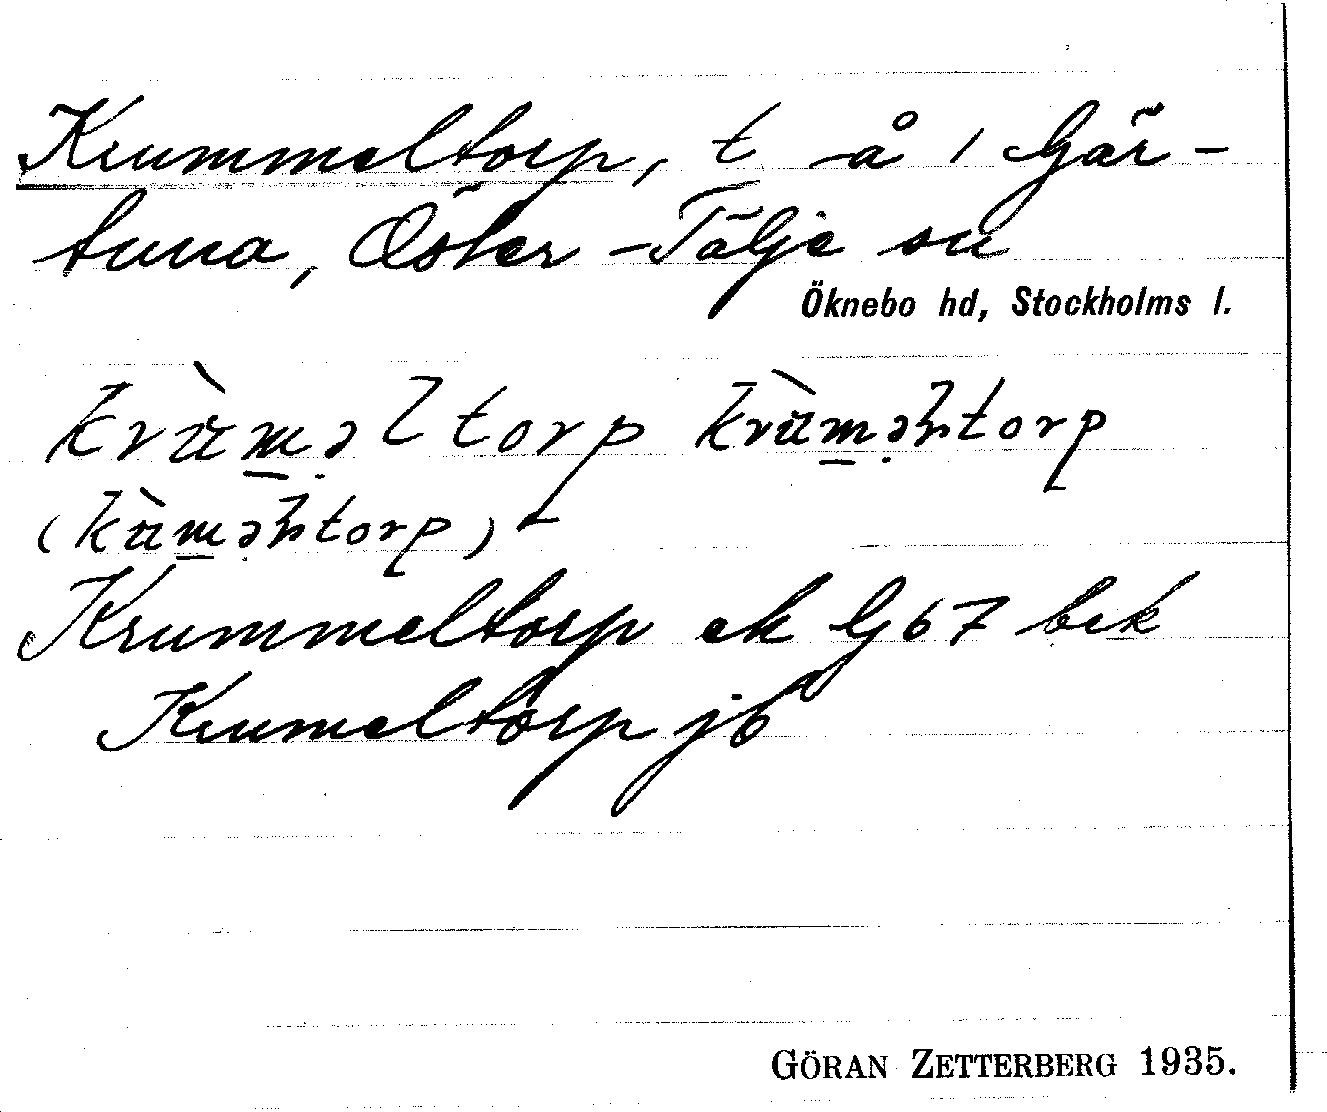 Krummeltorp, t å 1 Gär-
tuna, Öster-Tälje sn
Öknebo hd, Stockholms l.
krùm̲əltorp krùm̲əḷtorp
(kùm̲əḷtorp)
Krummeltorp ek G67 bek
Krumeltorp jb
GÖRAN ZETTERBERG 1935.